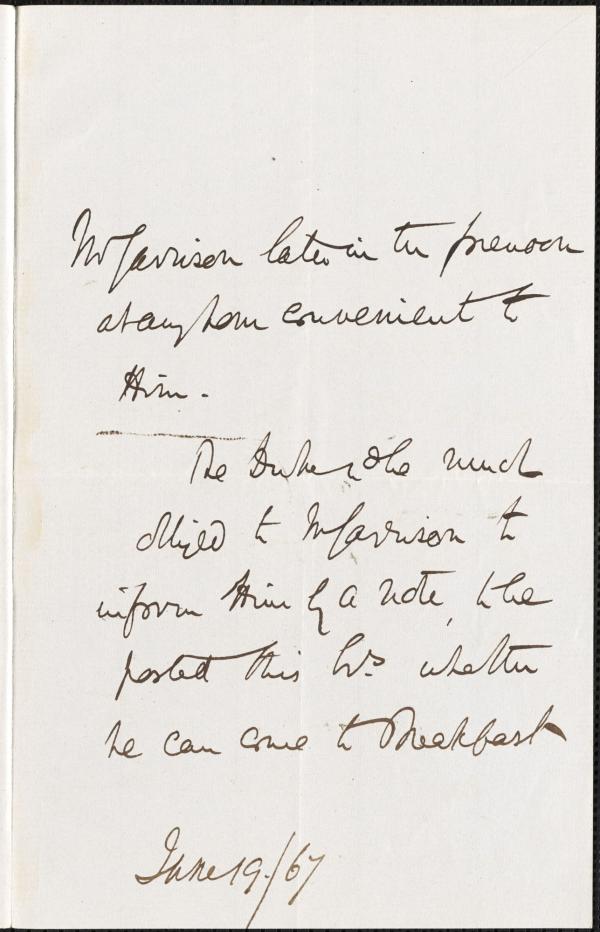 Mr Garrison later in the forenoon
at any hour convenient to
Him.
The Duke wd be much
obliged to Mr Garrison to
inform Him by a note, to be
posted this Ev.g whether
he can come to Breakfast
June 19./67